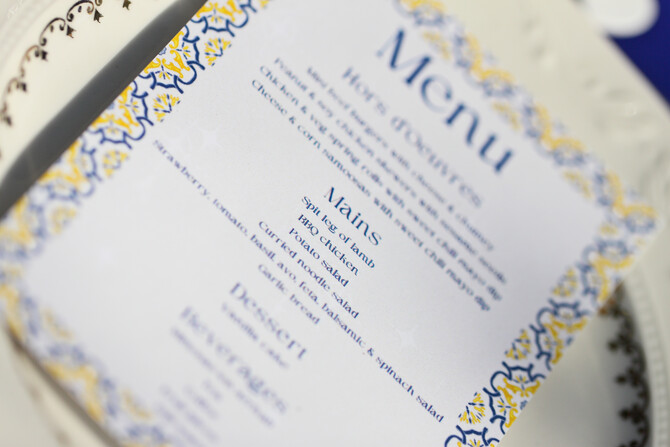 Menu
Hors d'oeuvres
Mini beef burgers with cheese & chutney
Peanut & soy chicken skewers with sesame seeds
Chicken & veg spring rolls with sweet chili mayo dip
Cheese & corn samoosas with sweet chili mayo dip
Mains
Spit leg of lamb
BBQ chicken
Potato salad
Curried noodle salad
Strawberry, tomato, basil, avo, feta, balsamic & spinach salad
Garlic bread
Dessert
Vanilla cake
Beverages